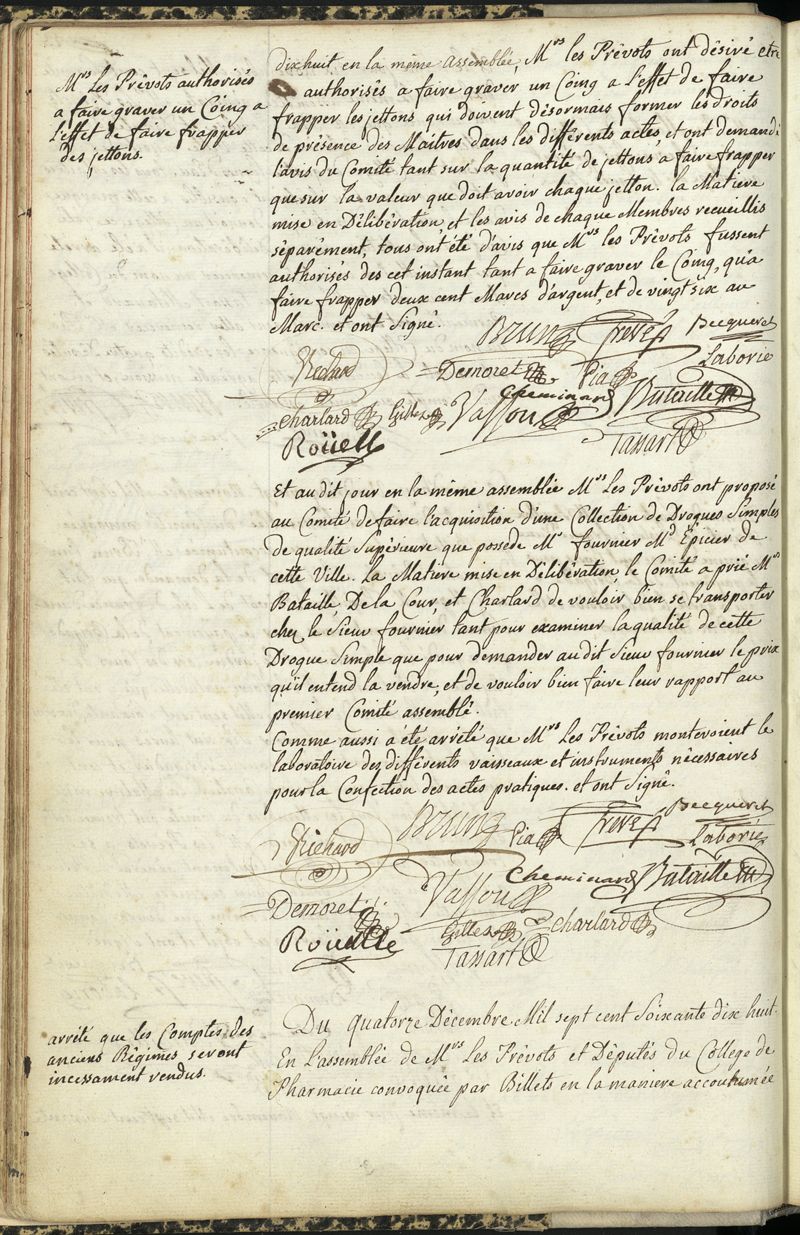 Mrs Les Prévots authorisés
a faire graver un Coing a
l'effet de faire frapper
des jettons.
dixhuit en la même assemblée, Mrs les Prévots ont désiré etre
authorisés a faire graver un Coing a l'effet de faire
frapper les jettons qui doivent désormais former les droits
de présence des Maitres dans les différents actes, et ont demandé
l'avis du Comité tant sur la quantité de jettons a faire frapper
que sur la valeur que doit avoir chaque jetton. la Matiere
mise en Délibération, et les avis de chaque Membres recueillis
séparément, tous ont été d'avis que Mrs les Prévots fussent
authorisés des cet instant tant a faire graver le Coing, qu'a
faire frapper deux cent Marcs d'argent, et de vingt six au
Marc. et ont Signé.
Brun Freres Becqueret
Richard Demoret Pia Laborie
Cheminard Bataille
Charlard Gilles Vassou
Roüelle Tassart
Et au dit jour en la même assemblée Mrs Les Prévots ont proposé
au Comité de faire l'acquisition d'une Collection de Drogues Simples
de qualité Supérieure que possede Mr fournier Md Epicier de
cette Ville. La Matiere mise en Délibération, le Comité a prié Mrs
Bataille, De la Cour, et Charlard de vouloir bien se transporter
chez le Sieur fournier tant pour examiner la qualité de cette
Drogue Simple que pour demander au dit Sieur fournier le prix
qu'il entend la vendre, et de vouloir bien faire leur rapport au
premier Comité assemblé.
Comme aussi a été arrété que Mrs Les Prévots monteroient le
laboratoire des différents vaisseaux et instruments nécessaires
pour la Confection des actes pratiques. et ont Signé.
Brun Pia Freres Becqueret
Richard Laborie
Cheminard Bataille
Demoret Vassou
Roüelle Gilles Charlard
Tassart
arrété que les Comptes des
anciens Régimes seront
incessament vendus.
Du quatorze Décembre Mil sept cent Soixante dix huit.
En L'assemblée de Mrs Les Prévots et Députés du College de
Pharmacie convoquée par Billets en la maniere accoutumée